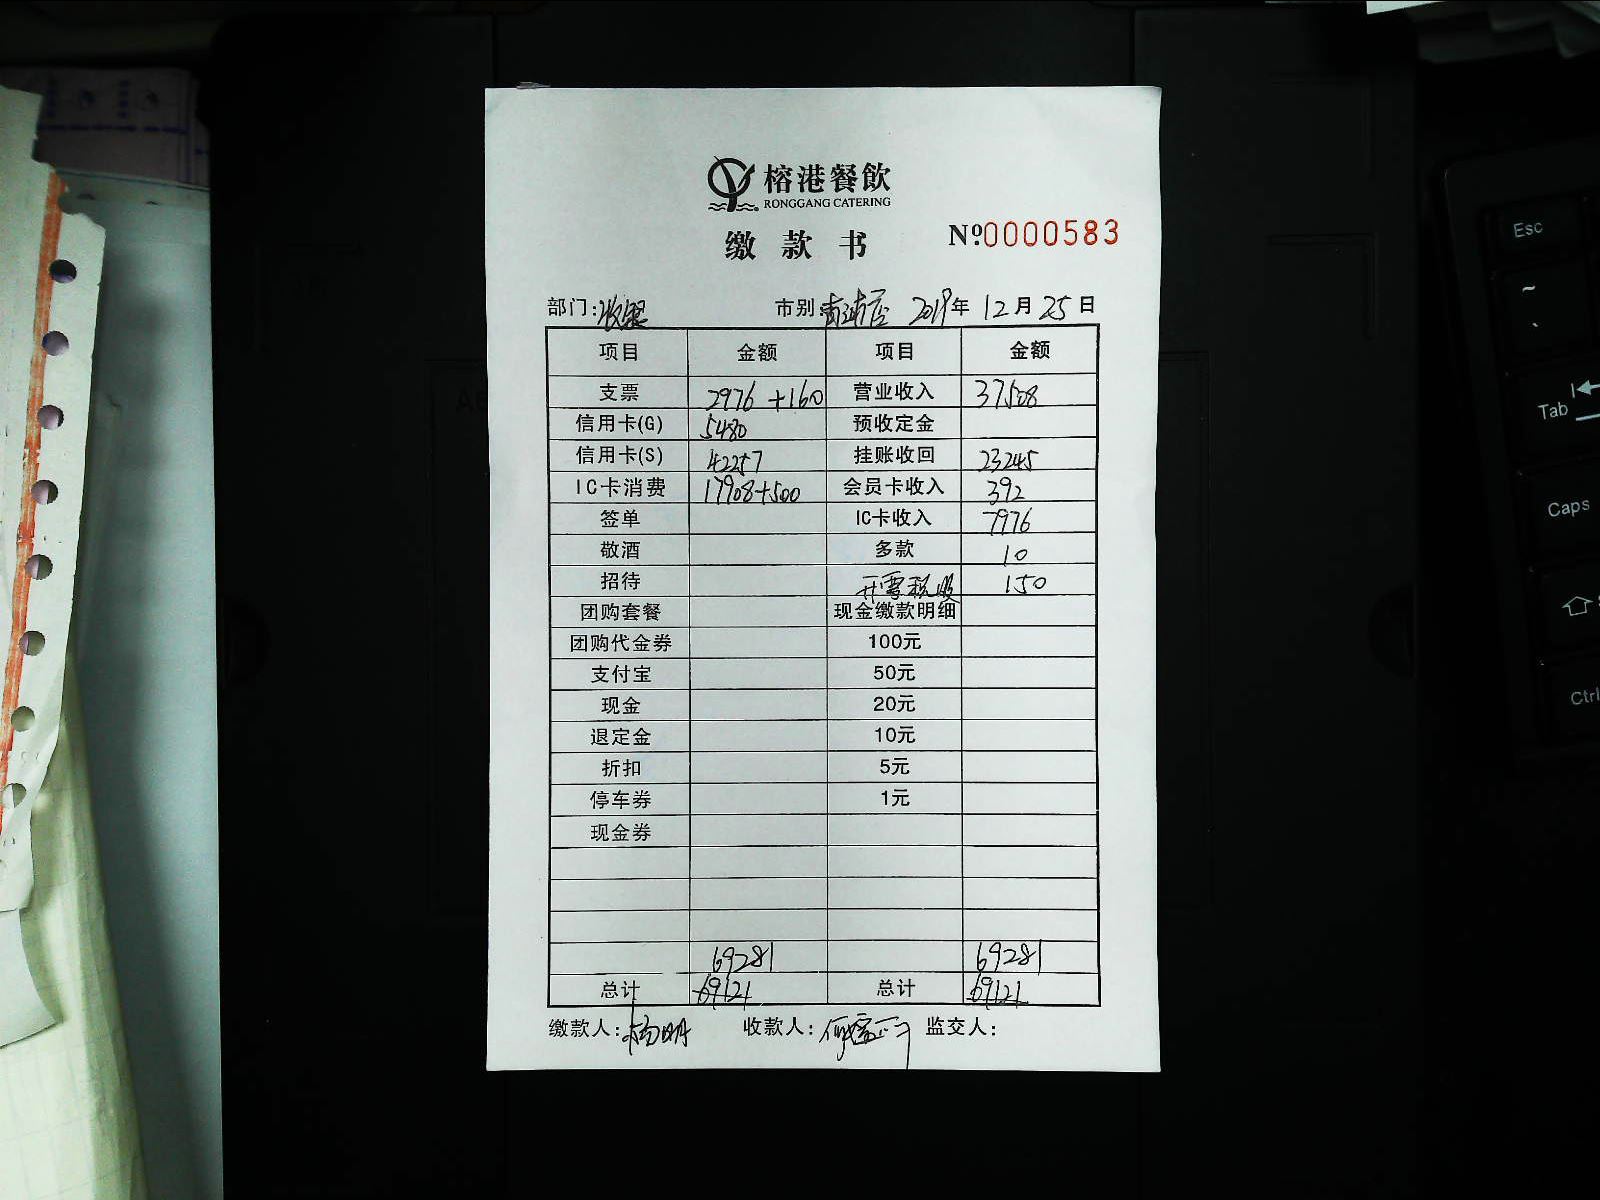 榕港餐飲
RONGGANG CATERING
缴款书 Nº0000583
部门:收银 市别: 2019年12月25日
项目 金额 项目 金额
支票 2976+160 营业收入 37508
信用卡(G) 5480 预收定金
信用卡(S) 42257 挂账收回 23245
IC卡消费 17908+500 会员卡收入 392
签单 IC卡收入 7976
敬酒 多款 10
招待 开票税收 150
团购套餐 现金缴款明细
团购代金券 100元
支付宝 50元
现金 20元
退定金 10元
折扣 5元
停车券 1元
现金券
69281 69281
总计 69121 总计 69121
缴款人: 收款人: 监交人:
Esc
~
Tab
Caps
Ctrl